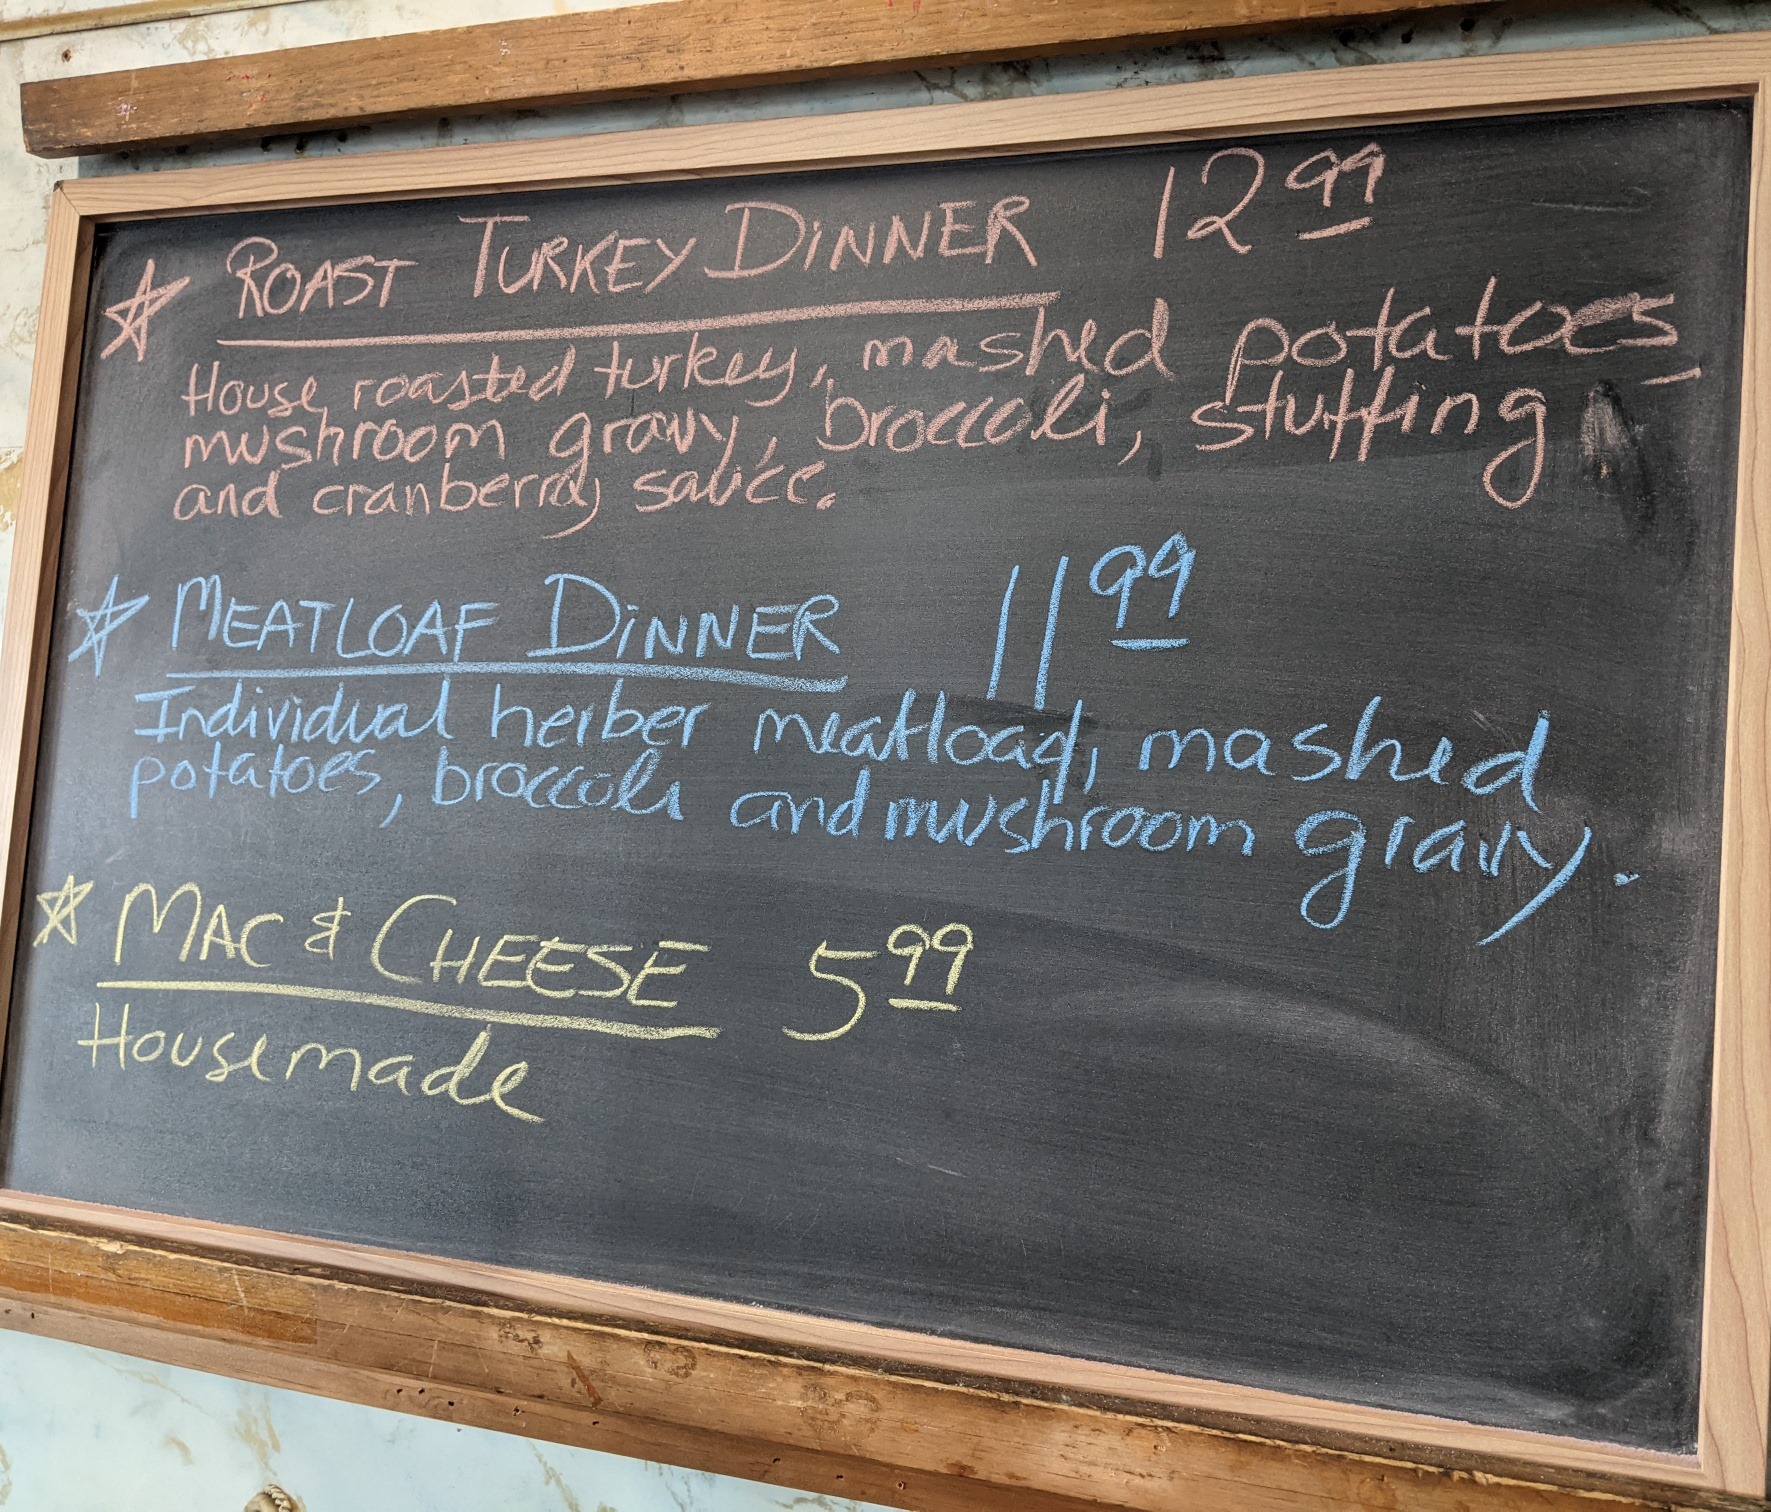 ☆ ROAST TURKEY DINNER 12.99
House roasted turkey, mashed potatoes,
mushroom gravy, broccoli, stuffing
and cranberry sauce.
☆ MEATLOAF DINNER 11.99
Individual herber meatloaf, mashed
potatoes, broccoli and mushroom gravy.
☆ MAC & CHEESE 5.99
Housemade